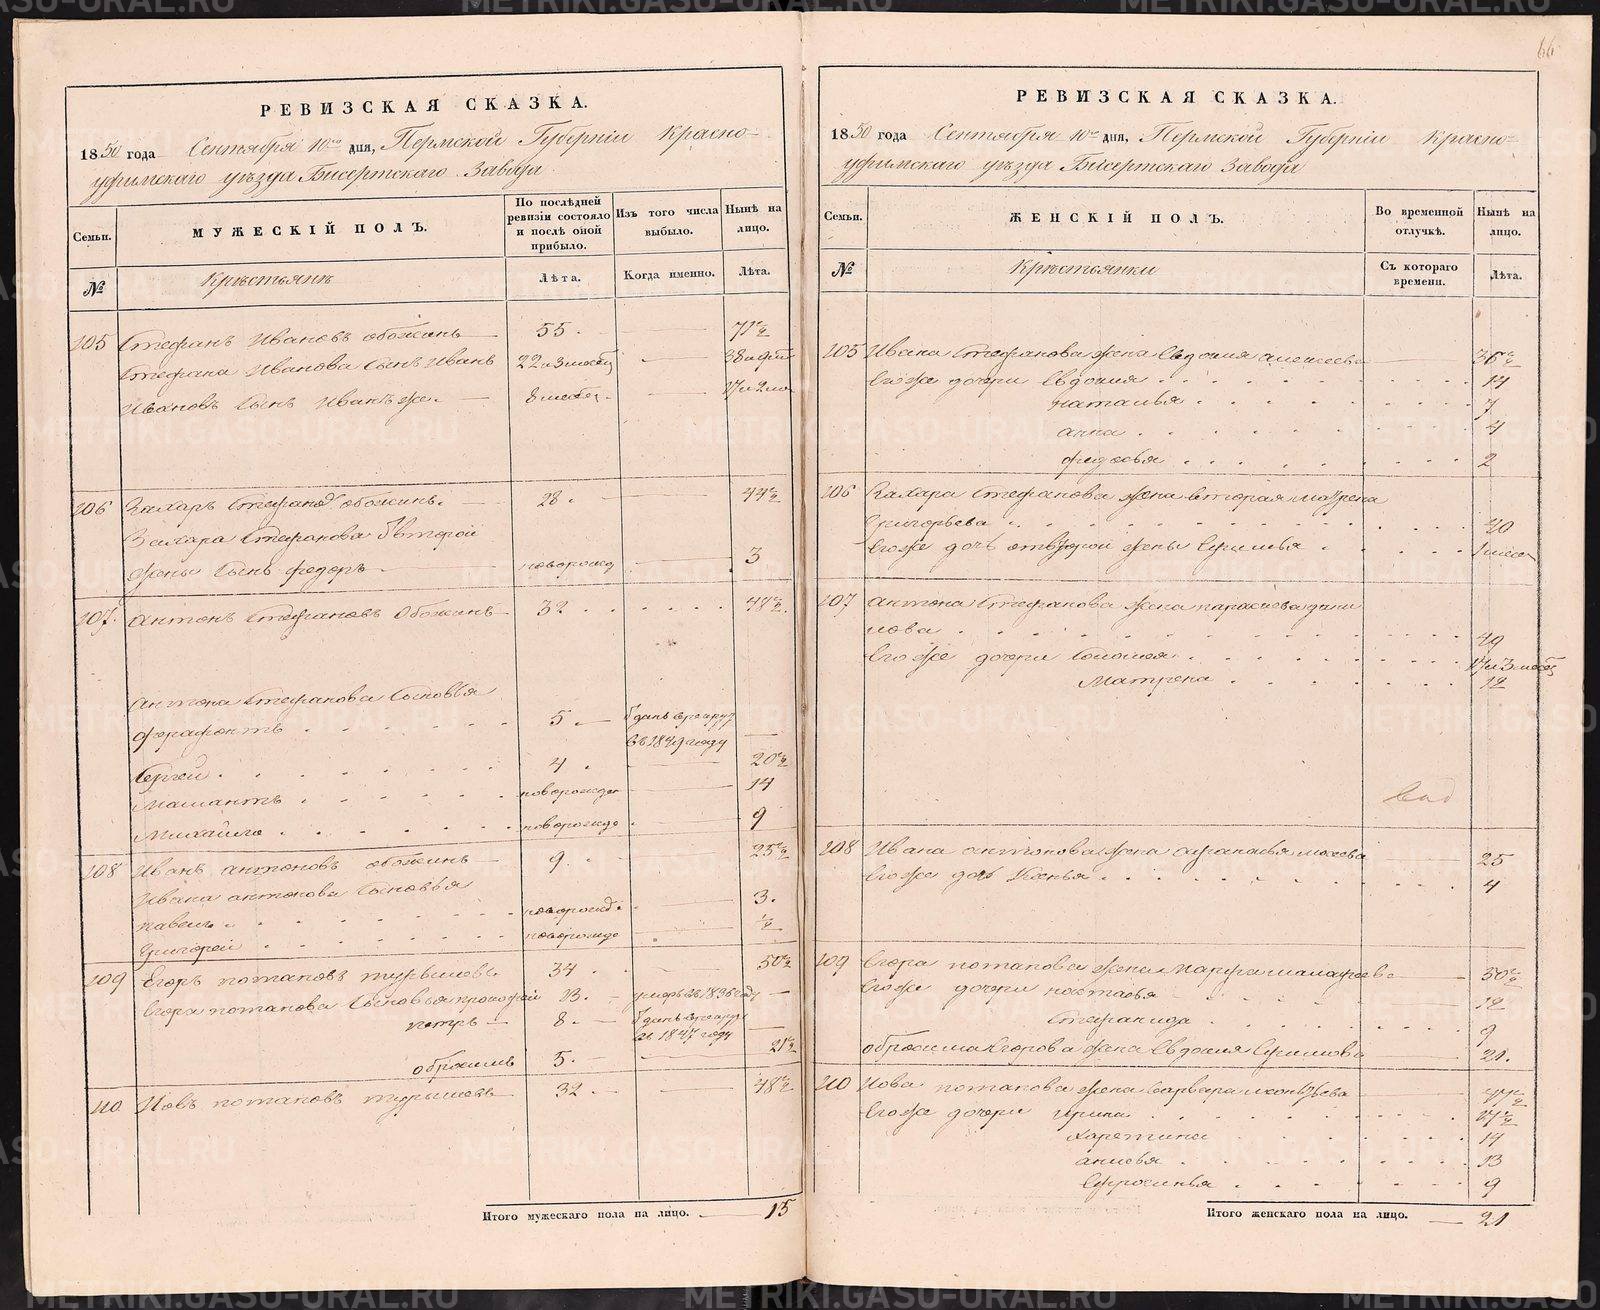 66
РЕВИЗСКАЯ СКАЗКА.
1850 года Сентября 10го дня, Пермской Губернiи Красно-
уфимскаго уезда Бисертскаго Завода
Семьи.
МУЖЕСКIЙ ПОЛЪ.
По послѣдней ревизiи состояло и послѣ оной прибыло.
Изъ того числа выбыло.
Нынѣ на лицо.
№
Крестьянѣ
Лѣта.
Когда именно.
Лѣта.
105 Стефанъ Ивановъ обожинъ 55. 71½
Стефана Иванова Сынъ Иванъ 22 и 3 месец
Ивановъ Сынъ Иванъ же. 8 месец.
106 Захаръ Стефановъ обожинъ. 28. 44½
Захара Стефанова второй
жены Сынъ федоръ новорожд 3
107. Антонъ Стефановъ Обожинъ 32 48½.
Антона Стефанова Сыновья
ферафонтъ 5. Зданъ врекруты
въ 1849 году
Сергей 4. 20½
Мамантъ новорожден 14
Михайло новорожде 9
108 Иванъ антоновъ обожинъ 9. 25½
Ивана антонова Сыновья
павелъ новорожд. 3.
Григорей новорожде ½
109 Егоръ потаповъ турышевъ 34. 50½
Егора потапова Сыновья прокофей 13. умеръ въ 1836 году
петръ 8. Зданъ врекруты
въ 1847 году
обросимъ 5. 21½
110 Иовъ потаповъ турышевъ 32. 48½
Итого мужескаго пола на лицо. 15
РЕВИЗСКАЯ СКАЗКА.
1850 года Сентября 10го дня, Пермской Губернiи Красно-
уфимскаго уезда Бисертскаго Завода
Семьи.
ЖЕНСКIЙ ПОЛЪ.
Во временной отлучкѣ.
Нынѣ на лицо.
№
Крестьянки
Съ котораго времени.
Лѣта.
105 Ивана Стефанова жена Евдокия алексеева 36½
Егоже дочери Евдокия 14
наталья 7
анна 4
федосья 2
106 Захара Стефанова жена вторая матрена
Григорьева 40
Егоже дочь отвторой жены
107 антона Стефанова жена парасковья дани
лова 49
Егоже дочери Соломея 17 и 3 месец
Матрена 12
108 Ивана антонова жена афанасья мокеева 25
Егоже дочь Ксенья 4
109 Егора потапова жена Марфа малафеева 50½
Егоже дочери настасья 12
Стефанида 9
обросима Егорова жена Евдокия Ефимова 21.
110 Иова потапова жена варвара леонтьева 47½
Егоже дочери ирина 17½
харетина 14
анисья 13
Ефросинья 9
Итого женскаго пола на лицо. 21
METRIKI.GASO-URAL.RU